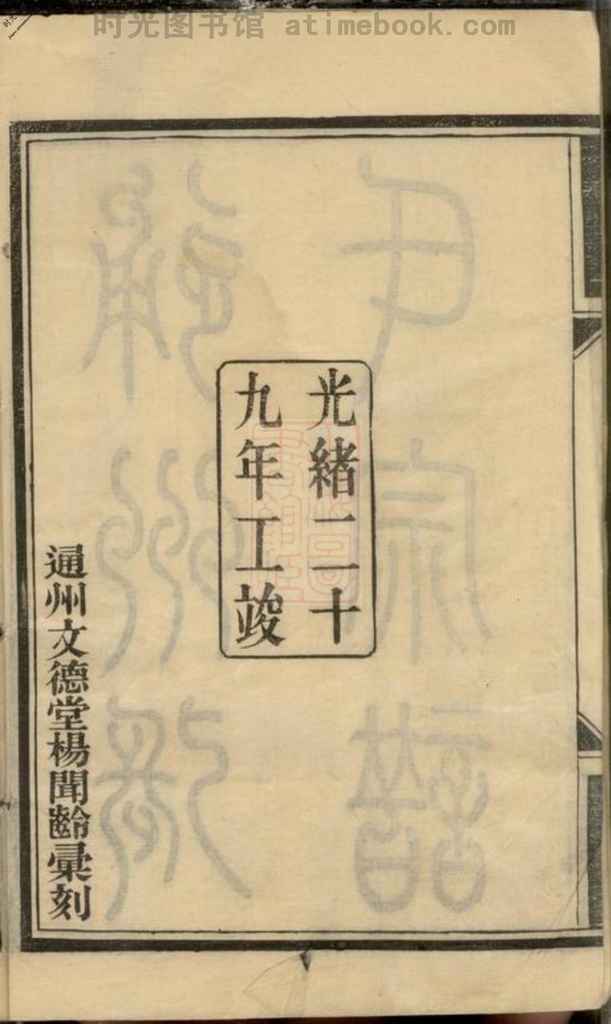 时光图书馆 atimebook.com
光緒二十
九年工竣
通州文德堂楊聞齡彙刻